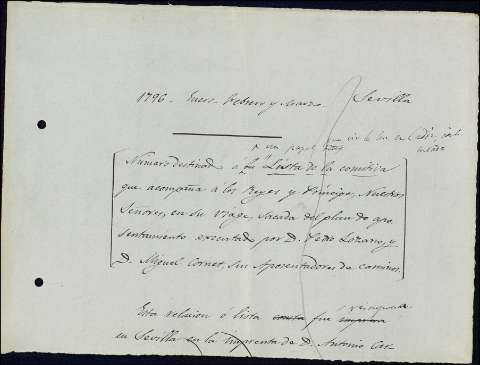 1796 - Enero Febrero y Marzo Sevilla
un papel que vio la luz en Cádiz
Numero destinado a la Lista de la comitiva
que acompaña a los Reyes y Príncipes, Nuestros
Señores, en su viage, sacada del plan de apo
sentamiento executado por D. Pedro Lozano, y
D. Miguel Cornet, sus Aposentadores de camino.
reimpresa
Esta relacion ó lista consta fue impresa
en Sevilla en la Imprenta de D. Antonio Car